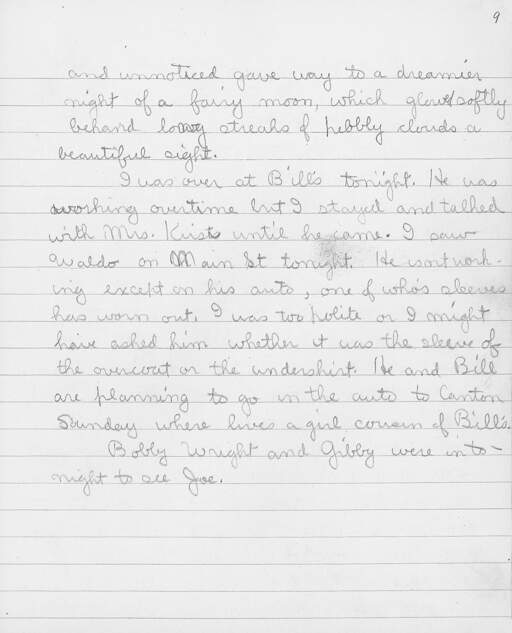 9
and unnoticed gave way to a dreamier
night of a fairy moon, which glows softly
behand long streaks of pebbly clouds a
beautiful sight.
I was over at Bill's tonight. He was
working overtime but I stayed and talked
with Mrs. Kirst until he came. I saw
Waldo on Main St tonight. He isnt work-
ing except on his auto, one of who's sleeves
has worn out. I was too polite or I might
have asked him whether it was the sleeve of
the overcoat or the undershirt. He and Bill
are planning to go in the auto to Canton
Sunday where lives a girl cousin of Bill's.
Bobby Wright and Gibby were in to-
night to see Joe.